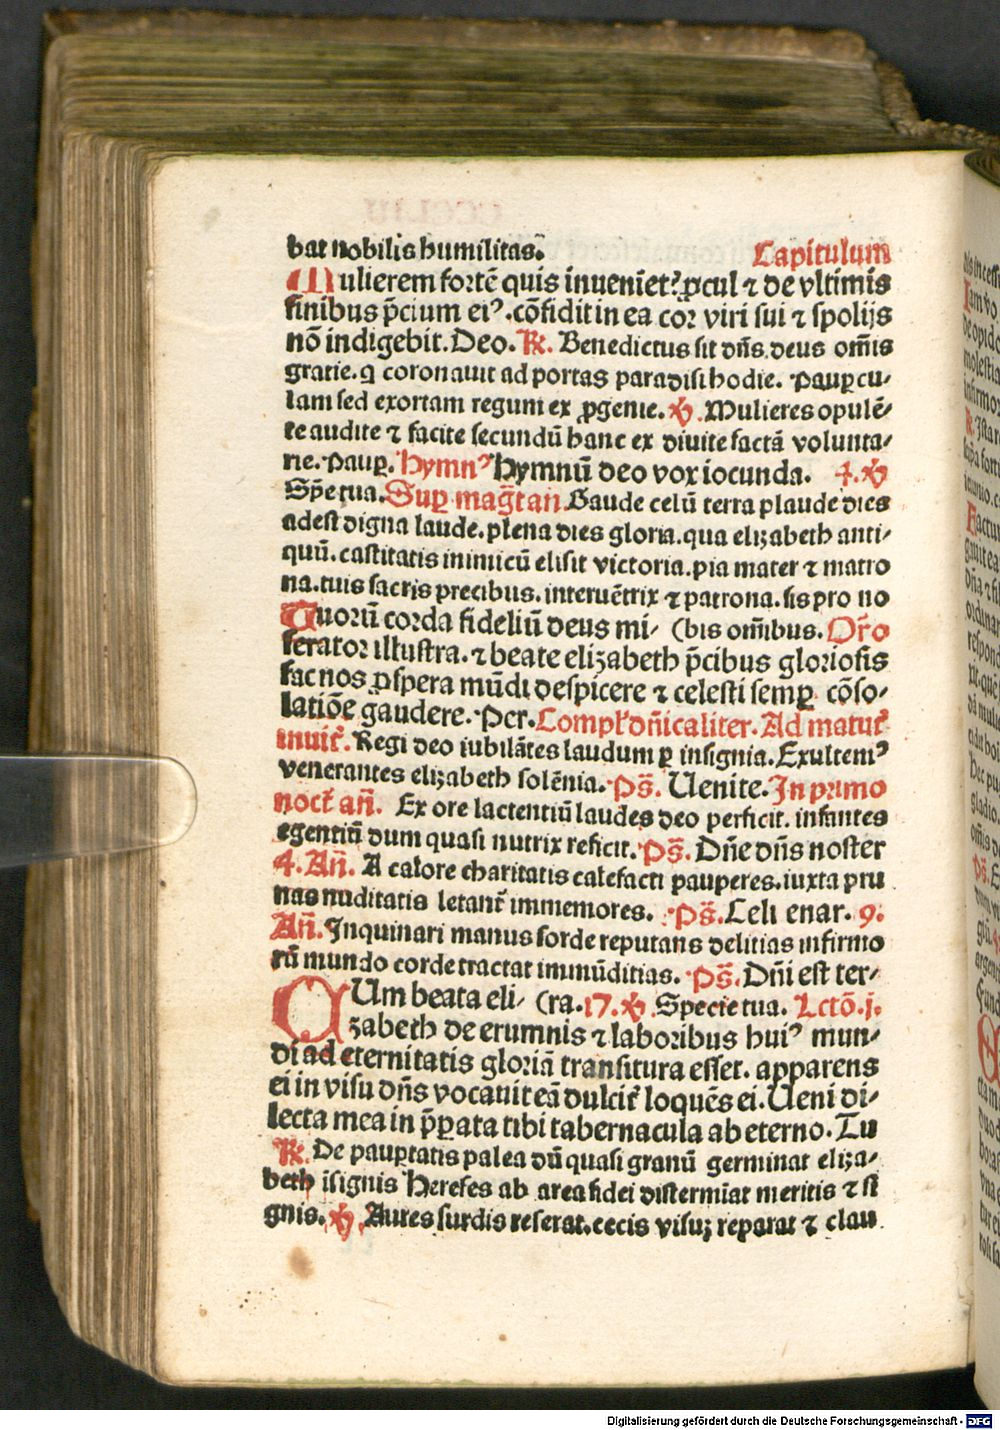 bat nobilis humilitas. Capitulum
Mulierem fortē quis inueniet? ꝓcul ⁊ de vltimis
finibus p̄cium ei⁹. cōfidit in ea cor viri sui ⁊ spolijs
nō indigebit. Deo. ℟. Benedictus sit dn̄s deus om̄is
gratie. q coronauit ad portas paradisi hodie. Paup̱cu-
lam sed exortam regum ex ꝓgenie. ℣. Mulieres opulē-
te audite ⁊ facite secundū hanc ex diuite factā volunta-
rie. Paup̱. Hymn⁹ Hymnū deo vox iocunda. 4. ℣
Sp̄e tua. Sup̱ mag̅tan̄. Gaude celū terra plaude dies
adest digna laude. plena dies gloria. qua elizabeth anti-
quū. castitatis inimicū elisit victoria. pia mater ⁊ matro
na. tuis sacris precibus. interuētrix ⁊ patrona. sis pro no
Tuorū corda fideliū deus mi- (bis om̄ibus. Or̄o
serator illustra. ⁊ beate elizabeth p̄cibus gloriosis
fac nos ꝓspera mūdi despicere ⁊ celesti semp̱ cōso-
latiōe gaudere. Per. Compl̄ dn̄icaliter. Ad matut̄
inuit̄. Regi deo iubilātes laudum p̱ insignia. Exultem⁹
venerantes elizabeth solēnia. Ps̄. Uenite. In primo
noct̄ an̄. Ex ore lactentiū laudes deo perficit. infantes
egentiū dum quasi nutrix reficit. Ps̄. Dn̄e dn̄s noster
4. An̄. A calore charitatis calefacti pauperes. iuxta pru
nas nuditatis letant̄ immemores. Ps̄. Celi enar. 9.
An̄. Inquinari manus sorde reputans delitias infirmo
rū mundo corde tractat immūditias. Ps̄. Dn̄i est ter-
Cum beata eli- (ra. 17. ℣. Specie tua. Lctō. j.
zabeth de erumnis ⁊ laboribus hui⁹ mun-
di ad eternitatis gloriā transitura esset. apparens
ei in visu dn̄s vocauit eā dulcit̄ loquēs ei. Ueni di-
lecta mea in p̄p̱ata tibi tabernacula ab eterno. Tu
℟. De paup̱tatis palea dū quasi granū germinat eliza-
beth īsignis Hereses ab area fidei distermīat meritis ⁊ si
gnis. ℣. Aures surdis reserat. cecis visuꝫ reparat ⁊ clau
Digitalisierung gefördert durch die Deutsche Forschungsgemeinschaft - DFG